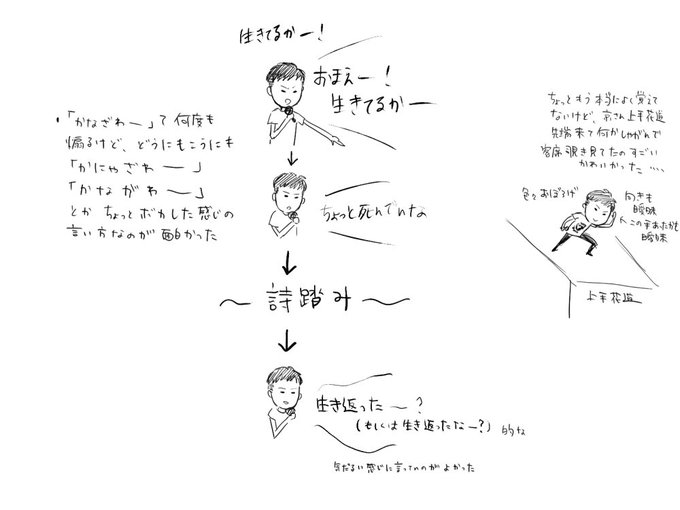 生きてるかー!
おまえー!
生きてるかー
・「かなざわー」って何度も
煽るけど、どうにもこうにも
「かにゃざわー」
「かながわー」
とか ちょっとボカした感じの
言い方なのが面白かった
ちょっと死んでんな
〜 詩踏み 〜
生き返ったー?
(もしくは生き返ったなー?) 的な
気だるい感じに言ってたのがよかった
ちょっともう本当によく覚えて
ないけど、京さん上手花道
先端来て何かしゃがんで
客席覗き見てたのすごい
かわいかった....
色々おぼろげ
向きも
曖昧
この手あたかも
曖昧
上手花道